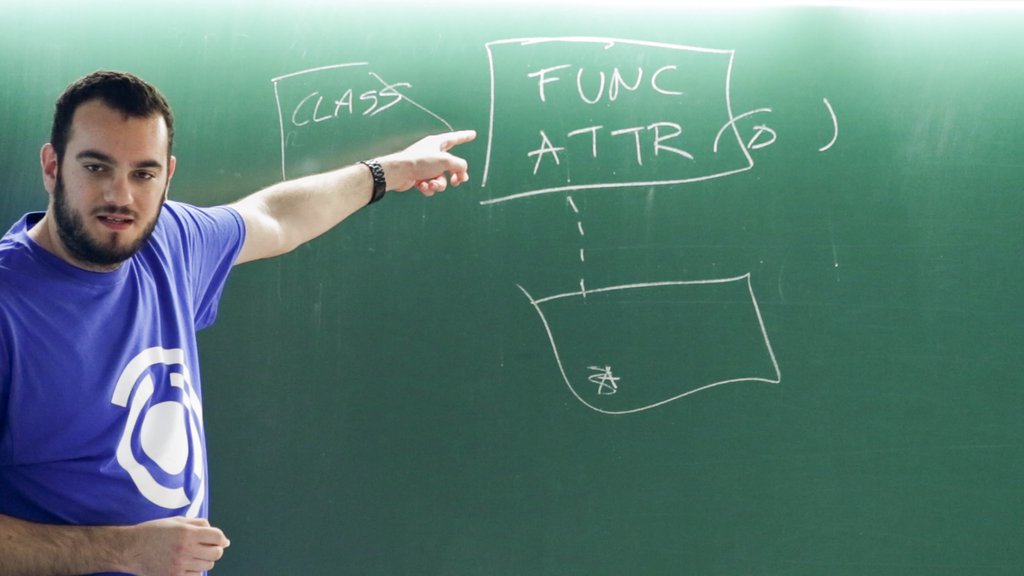 CLASS
FUNC
ATTR ( )